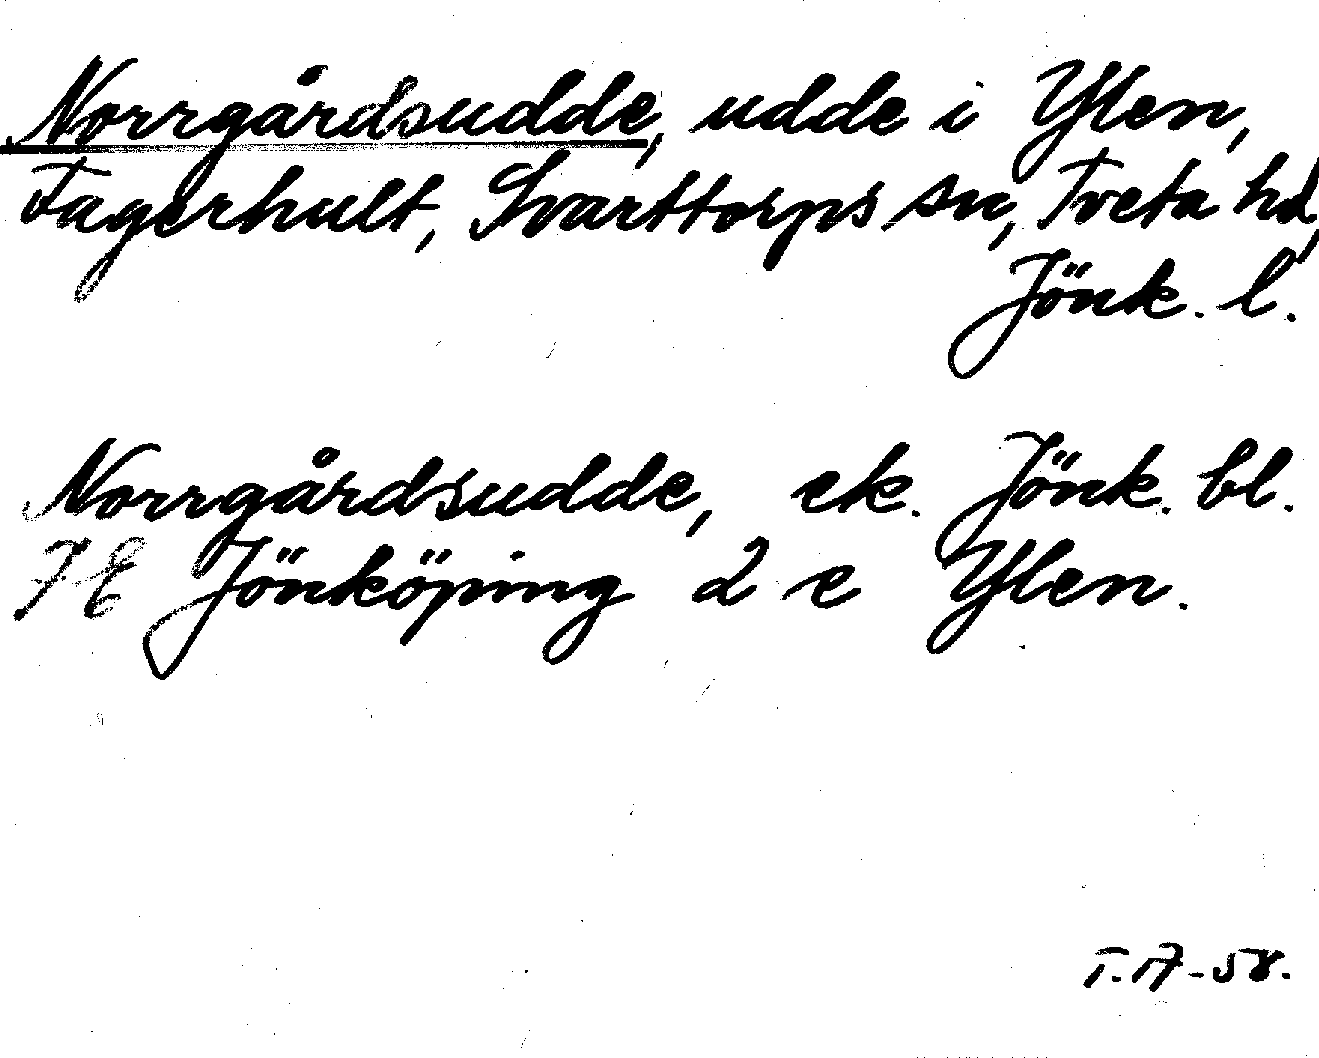 Norrgårdsudde, udde i Ylen,
Fagerhult, Svarttorps sn, Tveta hd,
Jönk. l.
Norrgårdsudde, ek. Jönk. bl.
7E Jönköping 2 e Ylen.
T.17-58.